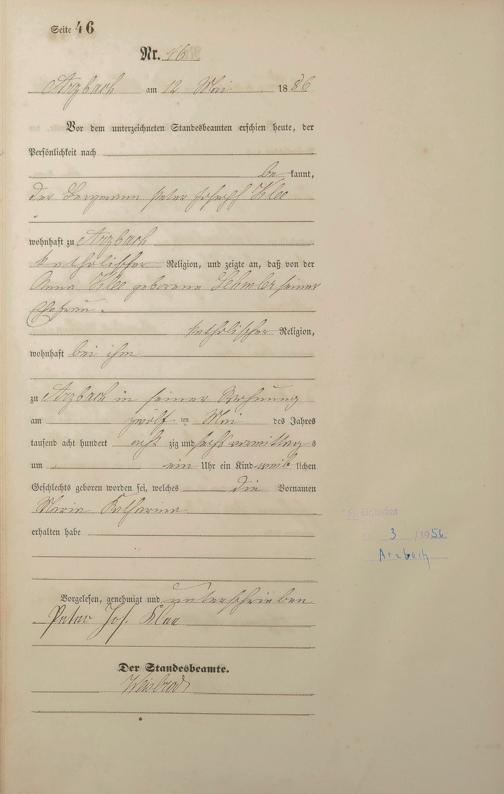 Seite 46
Nr. 46
Arzbach am 12 Mai 1886
Vor dem unterzeichneten Standesbeamten erschien heute, der
Persönlichkeit nach
be kannt,
der Bergmann Peter Joseph Klee
wohnhaft zu Arzbach
katholischer Religion, und zeigte an, daß von der
Anna Klee geborene seiner
Ehefrau
katholischer Religion,
wohnhaft bei ihm
zu Arzbach in seiner Wohnung
am zwölf ten Mai des Jahres
tausend acht hundert acht zig und sechs vormittags
um ein Uhr ein Kind weib lichen
Geschlechts geboren worden sei, welches die Vornamen
Maria Katharina
erhalten habe
Vorgelesen, genehmigt und unterschrieben
Peter Jos. Klee
Der Standesbeamte.
Weisbrod
3 1956
Arzbach